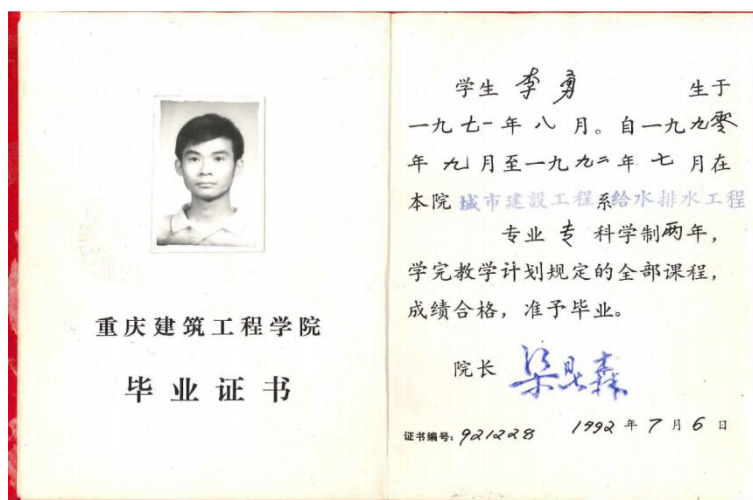 重庆建筑工程学院
毕业证书
学生 李勇 生于
一九七一年八月。自一九九零
年九月至一九九二年七月在
本院城市建設工程系给水排水工程
专业专科学制两年，
学完教学计划规定的全部课程，
成绩合格，准予毕业。
院长
证书编号：921228 1992年7月6日